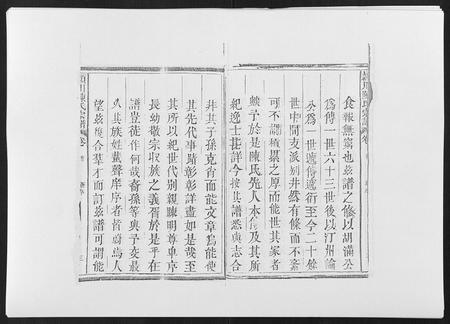 食報無窮也茲譜之修以胡滿公
爲傳一世六十三世後以汀州諭
公爲一世遞傳遞衍至今二十餘
世中間支派別井然有條而不紊
可不謂積累之厚而能世其家者
歟予於是陳氏先人本
紀逸士甚詳今按其譜悉與志合
非其子孫克肖而能文章爲能使
其先代事蹟彰彰詳盡如是哉至
其所以紀世代別親疎明尊卑序
長幼敬宗收族之義胥於是乎在
譜豈徒作何哉裔孫等與予交最
久其族姓蜚聲庠序者皆蔚爲人
望茲復合羣才而訂茲譜可謂能